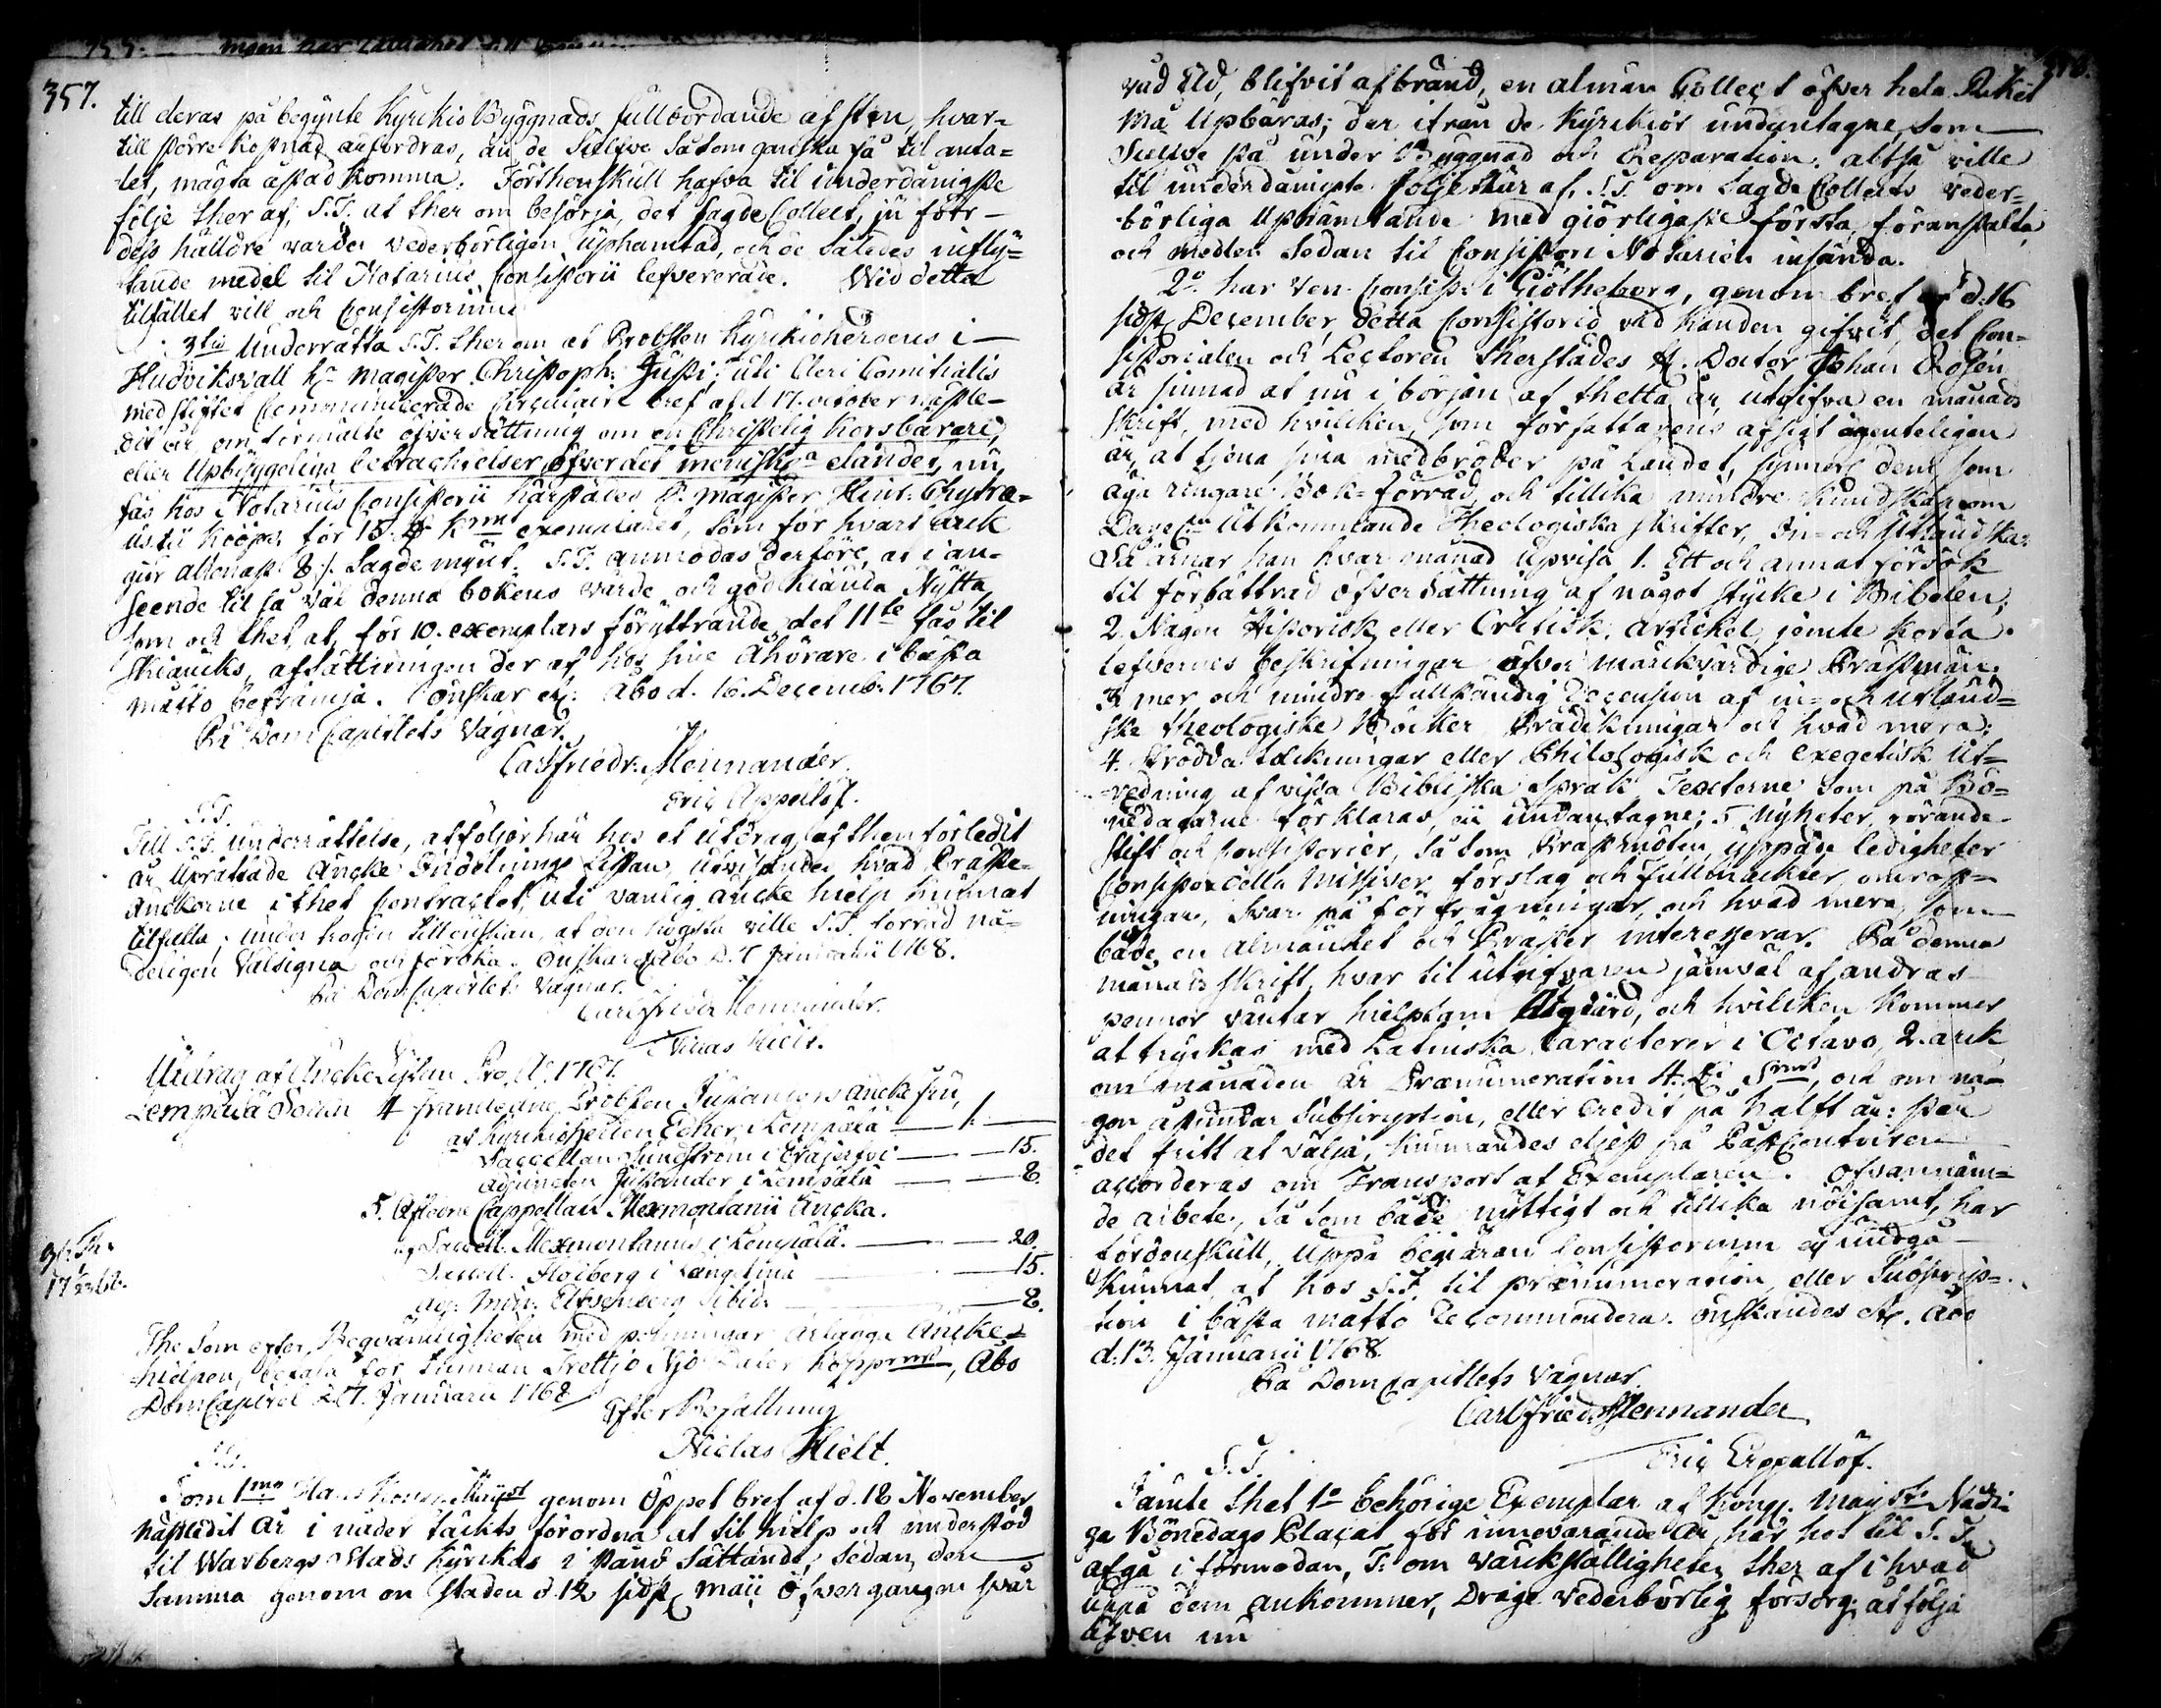 357.
till deras på begynte Kyrkio Byggnads fullbordande af sten, hvar=
till större kostnad anfordras, än de Sielfve såsom ganska få til anta=
let, mägta åstad komma. Förthenskull hafva til underdånigste
följe ther af, S.T. at ther om besörja, det sagde Collect, ju förr—
dess hälldre varder vederbörligen uphämtad, och de således infly=
tande medel til Notarius Consistorii lefvererade. Wid detta
tilfället vill och Consistorium
3tio Underrätta S.T. ther om at Probsten Kyrkioherdens i—
Hudviksvall Hr Magister Christoph: uti Cleri Comitialis
med stiftet Communicerade Circulaire bref af d 17. october nästle—
dit år om förmälte öfversättning om en Christelig Korsbärare,
eller Upbyggeliga betrachtelser öfver det menskl:a eländet, nu,
fås hos Notarius Consistorii härstädes Hr Magister
til Kiöps för 15. exemplaret, som för hvart arck
giör allenast 8/. Sagde mynt. S.T. anmodas derföre, at i an=
seende til så väl denna bokens värde och godkiända Nytta,
som och thet, at för 10. exemplars föryttrande, det 11te fås til
skiäncks, afsättningen der af hos sine Åhörare i bästa
måtto befrämja. önskar etc: Åbo d. 16. Decemb: 1767.
På DomCapitlets Vägnar.
Carl Friedr: Mennander.
Eric Appellöf.
S.T.
Till S.T. underrättelse, at följer här hos et utdrag af then förledit
år Uprättade Ancke Indelnings Listan, utvisande hvad Präste=
Anckorne i thet Contractet, uti vanlig ancke hielp kunnat
tilfalla; under trogen tillönskan, at den högsta ville S.T. förråd nå=
deligen Välsigna och föröka. Önskar etc Åbo d. 7 Januarii 1768.
På DomCapitlets Vägnar.
Carl Friedr Mennander.
Niclas Hielt.
Utdrag af Ancke Listan Pro Ao 1767.
Lempälä Sochn 4 framledne Probsten Ancke fru,
af Kyrkioherden Lempälä — 1. —
Sacellan — 15.
Adjuncten i Lempälä — 8.
5. Aflidne Cappellan Mexmontanii Ancka.
af Sacell. Mexmontanus i Lempälä. — 20.
Sacell. i — 15.
Adj: Min: ibid: — 8.
The som efter Beqvämligheten med penningar erlägga Ancke=
hielpen, betala för Tunnan Trettjo Nijo Daler Koppar mt, Åbo
DomCapitel d. 7. Januarii 1768
Efter Befallning
Niclas Hielt.
S.T.
Som 1mo Hans Kongl: Mayst genom Öppet bref af d. 18 November
nästledit år i nåder täckts förordna at til hielp och understöd
til Warbergs Stads Kyrckas i stånd Sättande, sedan den
Samma genom en staden d. 12 sidst Maii öfvergången svår
våd Eld, blifvit afbränd, en alman Collect öfver hela Riket
må Upbäras; der ifrån de Kyrkior undantagne som—
Sielfve stå under Byggnad och Reparation. altså ville
til underdånigste följe här af, S.T. om sagde Collects veder=
börliga Uphämtande med giörligaste första, föranstalta,
och medlen sedan til Consistorii Notarien insända.
2o. har Ven. Consist: i Giötheborg, genom bref af d. 16
sidst December, detta Consistorio vid handen gifvit, det Con=
sistorialen och Lectoren therstädes H. Doctor Johan Rosén
är sinnad at nu i början af thetta år, utgifva en månads
skrift, med hvilcken, som författarens afsigt ägenteligen
är, at tjena sina medbröder på Landet, synnerl dem som
äga ringare Bok=förråd, och tillika mindre kundskap om
Dagel:n Utkommande Theologiska skrifter, In= och Utländska:
Så ärnar han hvar månad Upvisa 1. Ett och annat försök
til förbättrad öfversättning af något stycke i Bibelen;
2. Någon Historisk eller Critisk, Artickel jemte korta
lefvernes beskrifningar öfver märckvärdige Prästmän.
3 mer och mindre fullständig Recension af in= och utländ=
ske theologiske Böcker Prädikningar och hvad mera;
4. Strödda täckningar eller Philologisk och exegetisk Ut=
redning af vissa Bibliska språk, Texterne som på Bö=
nedagarne förklaras, ei undantagne; 5 Nyheter, rörande
Stift och Consistorier, så som Prästmöten, yppade ledigheter
Consistoriella Missiver, förslag och fullmackter, omröst=
ningar, svar på förfrågningar, och hvad mera, som—
både en almänhet och Präster interesserar. På denna
månads skrift, hvar til utgifvaren jämväl af andras
pennor väntar hielpsam Åtgiärd, och hvilcken kommer
at tryckas med Latinska Caracterer i Octavo, 2. arck
om månaden är Prænumeration 4. Smt, och om nå=
gon åstundar Subscription, eller Credit på halft år: står
det fritt at välja, kunnandes eljest på PåstContoiren
accorderas om Transport af Exemplaren. Ofvannäm=
de arbete, så som både nyttigt och tillika nöisamt, har
fördenskull, uppå begiäran Consistorium ej undgå
kunnat at hos S.T. til prænumeration eller Subscrip=
tion i bästa måtto Recommendera. önskandes etc. Åbo
d. 13. Januarii 1768.
På DomCapitlets Vägnar.
Carl Fried: Mennander
Eric Appellöf.
S.T.
Jämte thet 1o behörige Exemplar af Kongl. Mayst:s Nådi=
ga Bönedags Placat för innevarande år, här hos til S.T.
afgå i förmodan, T. om värckställigheten ther af i hvad
uppå dem ankommer, Drage vederbörlig försorg; at följa
äfven nu